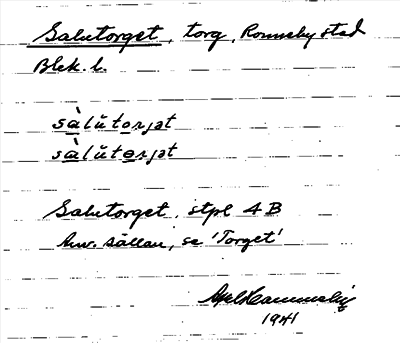 Salutorget, torg, Ronneby stad
Blek. l.
sàlŭtorjət
sàlŭtorjət
Salutorget, stpl 4B
Anv. sällan, se 'Torget'
1941